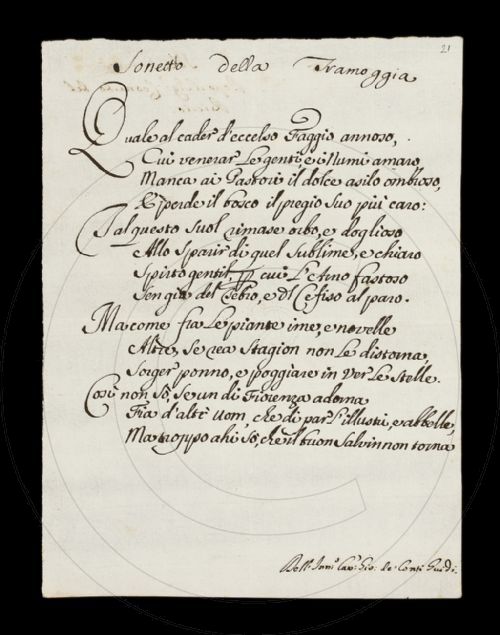 21
Sonetto della Tramoggia
Quale al cader d'eccelso Faggio annoso,
Cui venerar le genti, e i Numi amaro
Manca ai Pastori il dolce asilo ombroso,
E perde il bosco il pregio suo più caro:
Tal questo suol rimase orbo, e doglioso
Allo sparir di quel sublime, e chiaro
Spirto gentil, per cui l'Arno fastoso
Sen gia del Tebro, e del Cefiso al paro.
Ma come fra le piante ime, e novelle
Altre, se rea Stagion non le distorna,
Sorger ponno, e poggiare in ver le stelle.
Così non sò, se un di Fiorenza adorna
Fia d'altr' uom, che di par l'illustri, e abbelle,
Ma troppo ahi sò, che il buon Salvin non torna
Dell' Cav: Gio: de Conti Guidi.